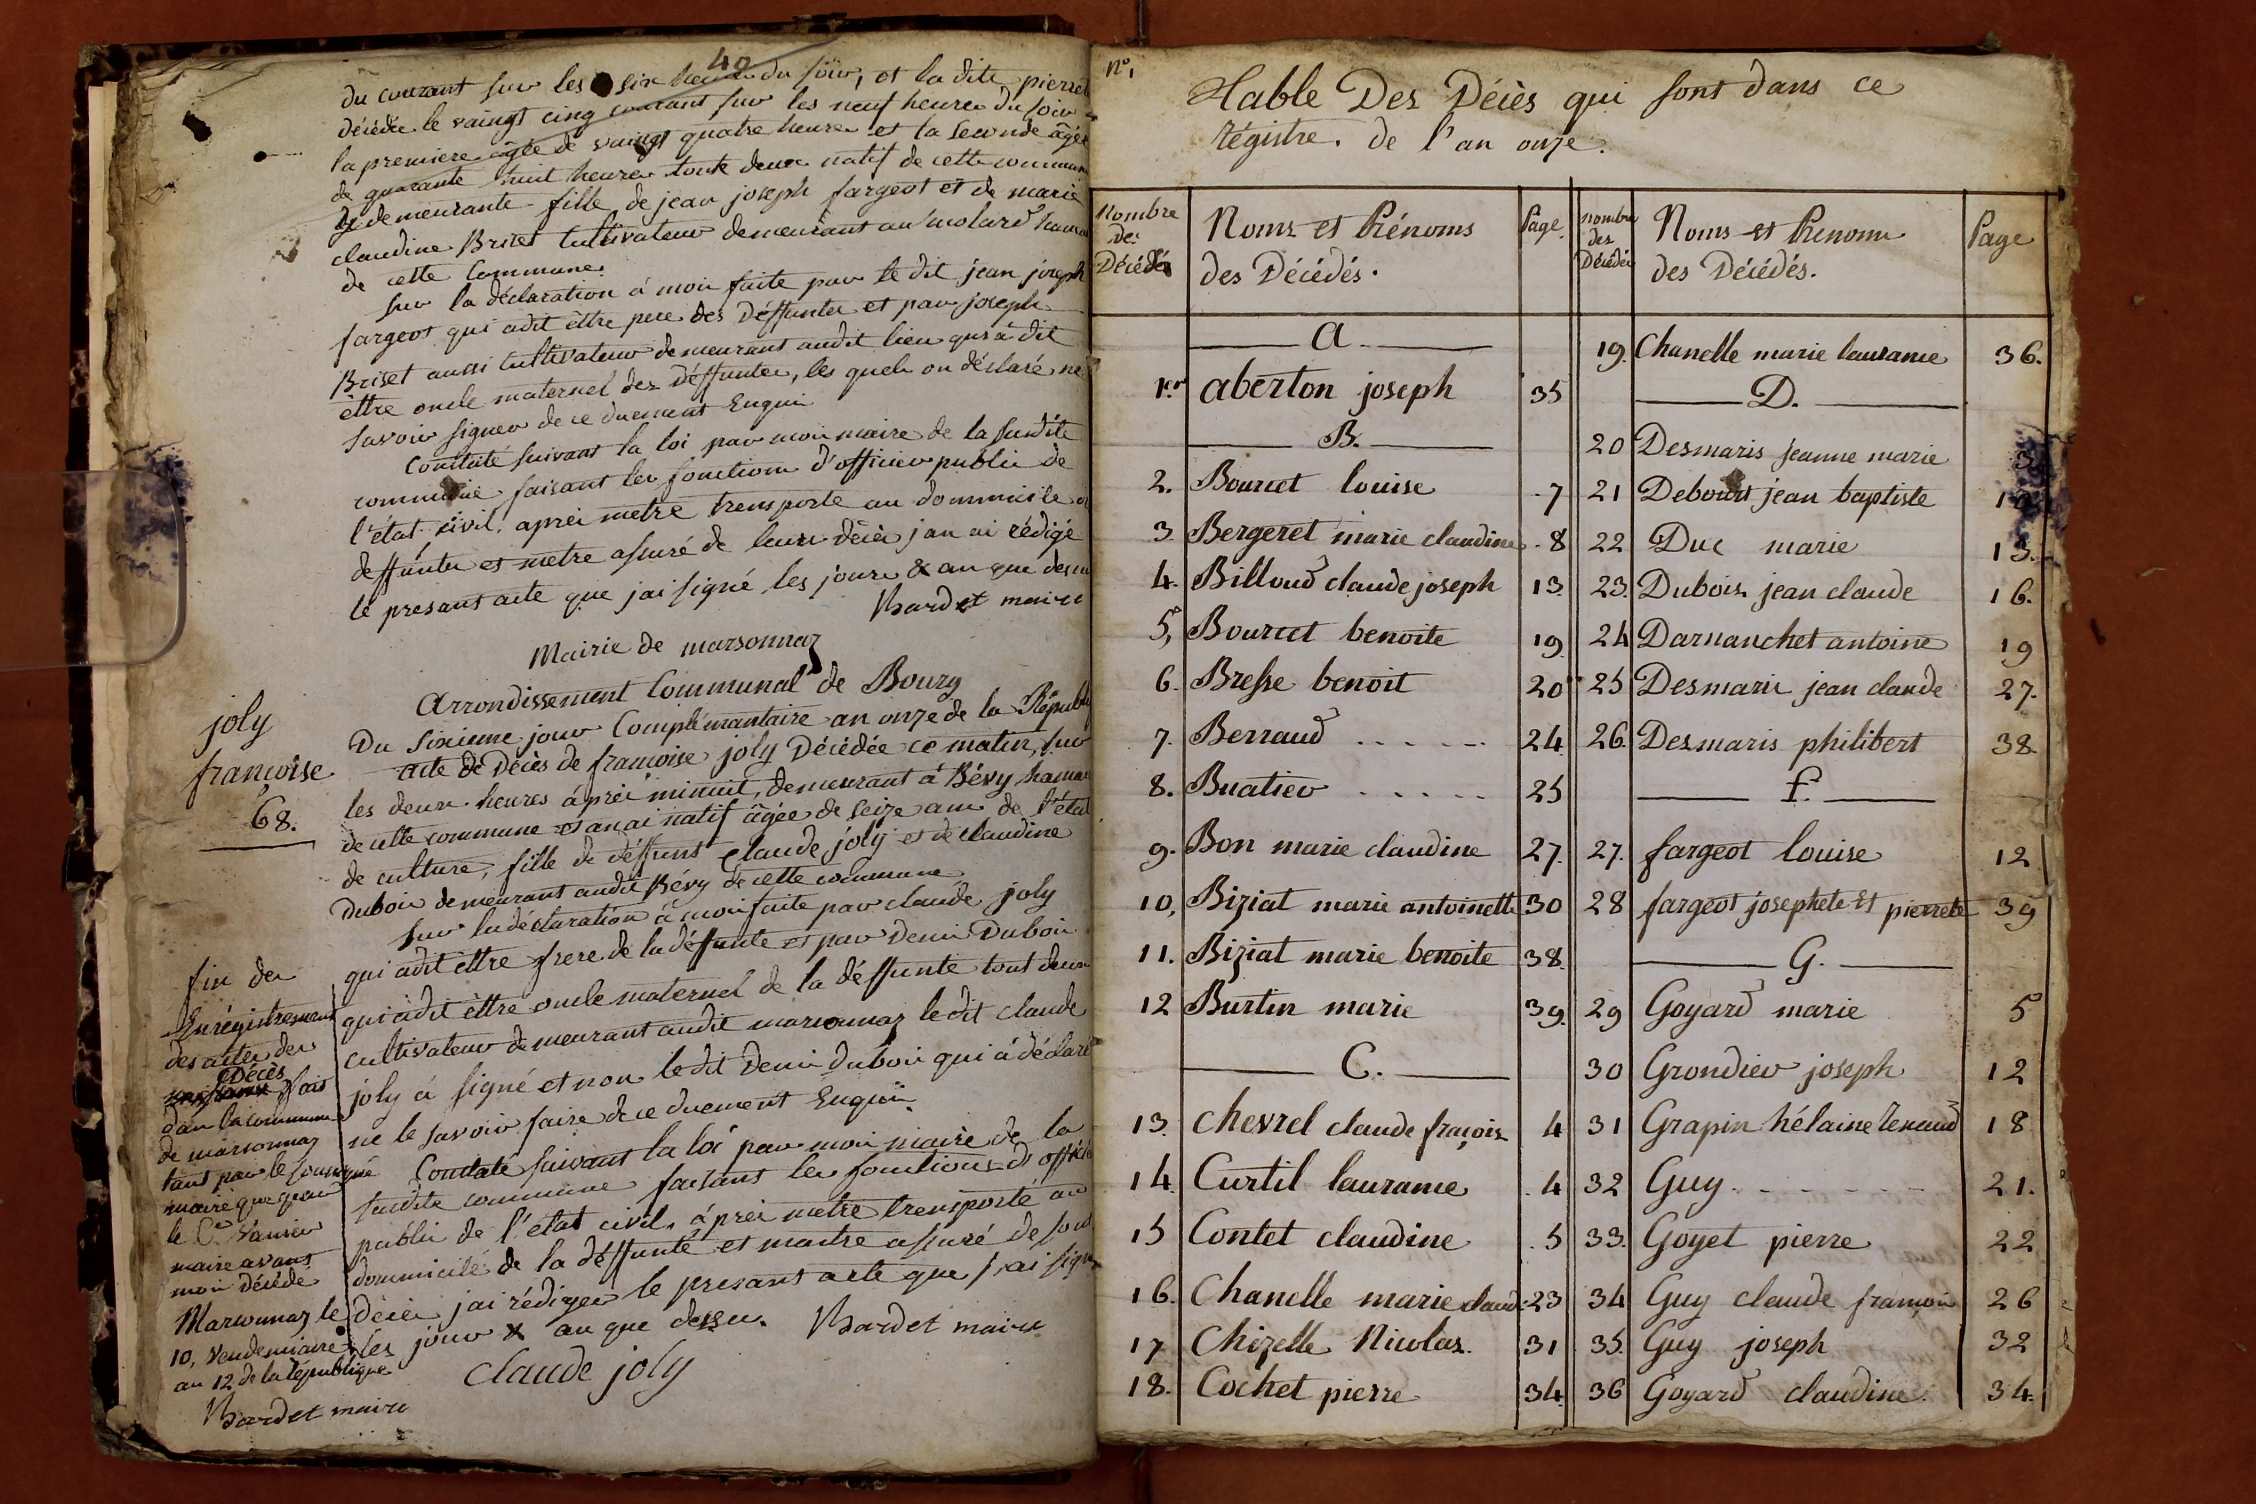 40
du courant sur les six heures du soir, et la dite pierrette
décédée le vaingt cinq courant sur les neuf heures du soir
la premiere âgée de vaingt quatre heures et la seconde âgée
de quarante huit heures toute deux natif de cette commune
y demeurante fille de jean joseph fargeot et de marie
claudine Briset Cultivateur demeurant au molard hamau
de cette Commune.
Sur la déclaration à moi faite par le dit jean joseph
fargeot qui adit être pere des Déffuntes et par joseph
Briset aussi Cultivateur demeurant audit lieu qui à dit
être oncle maternel des Déffuntes, les quels on déclaré ne
savoir signer de ce duement Enquis
Constaté suivant la loi par moi maire de la susdite
commune faisant les fonctions d'officier public de
l'état civil, après metre transporté au dommicile
deffuntes et metre assuré de leurs décès j'an ai rédigé
le presant acte que jai signé, les jours & an que dessus
Bardet maire
Mairie de marsonnaz
Arrondissement Communal de Bourg
joly
françoise
68.
Du Sixieme jour Complémantaire an onze de la Républ
acte de Décès de françoise joly Décédée ce matin, sur
les deux heures après minuit, demeurant à Bévy hamau
de cette commune et anai natif âgée de seize ans de l'état
de culture, fille de déffunt Claude joly et de claudine
dubois demeurant audit Bévy de cette commune
Sur la déclaration à moi faite par claude joly
qui adit être frere de la déffunte et par Denis Dubois
qui adit être oncle maternel de la déffunte tout deux
cultivateur demeurant audit marsonnaz le dit claude
joly à signé et non le dit Denis Dubois qui à déclaré
ne le savoir faire de ce duement Enquis.
Constaté suivant la loi par moi maire de la
susdite commune faisant les fonctions d'officier
public de l'état civil, après metre transporté au
dommicile de la déffunte et metre assuré de son
décès jai rédigée le presant acte que j'ai signé
les jour & an que dessu. Bardet maire
claude joly
fin des
Enrégistrement
des actes des
Décès
fait
dans la commune
de marsonnaz
tant par le soussigné
maire que par
le C.en Vanier
maire avant
moi décédé
Marsonnaz le
10, vendemiaire
an 12 de la république
Bardet maire
N.º 1
Table Des Décès qui sont dans ce
régistre. de l'an onze.
Nombre des Décédés Noms et Prénoms des Décédés. Page
A.
1er aberton joseph 35
B.
2. Bourcet louise 7
3 Bergeret marie claudine 8
4. Billoud claude joseph 13
5, Bourcet benoite 19
6. Bresse benoit 20
7. Berraud ...... 24
8. Buatier ...... 25
9. Bon marie claudine 27.
10, Biziat marie antoinette 30
11. Biziat marie benoite 38
12 Burtin marie 39.
C.
13. chevrel claude fraçois 4
14. Curtil lauranne 4
15 Contet claudine 5
16. Chanelle marie claud. 23
17 Chizelle Nicolas. 31
18. Cochet pierre 34
nombre des Décédés Noms et Prenoms des Décédés. Page
19. Chanelle marie lauranne 36.
D.
20 Desmaris jeanne marie 3
21 Debourt jean baptiste
22 Duc marie 13.
23. Dubois jean claude 16.
24 Darnanchet antoine 19
25 Desmaris jean claude 27.
26. Desmaris philibert 38.
f.
27. fargeot louise 12
28 fargeot josephete et pierrete 39
G.
29 Goyard marie 5
30 Grondier joseph 12
31 Grapin hélaine Renaud 18
32 Guy ...... 21.
33. Goyet pierre 22
34 Guy claude françois 26
35. Guy joseph 32
36 Goyard claudine. 34.